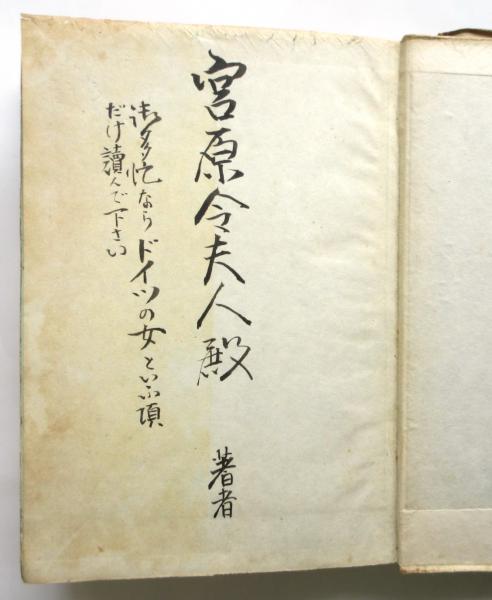 宮原令夫人殿
著者
御多忙ならドイツの女といふ項
だけ讀んで下さい